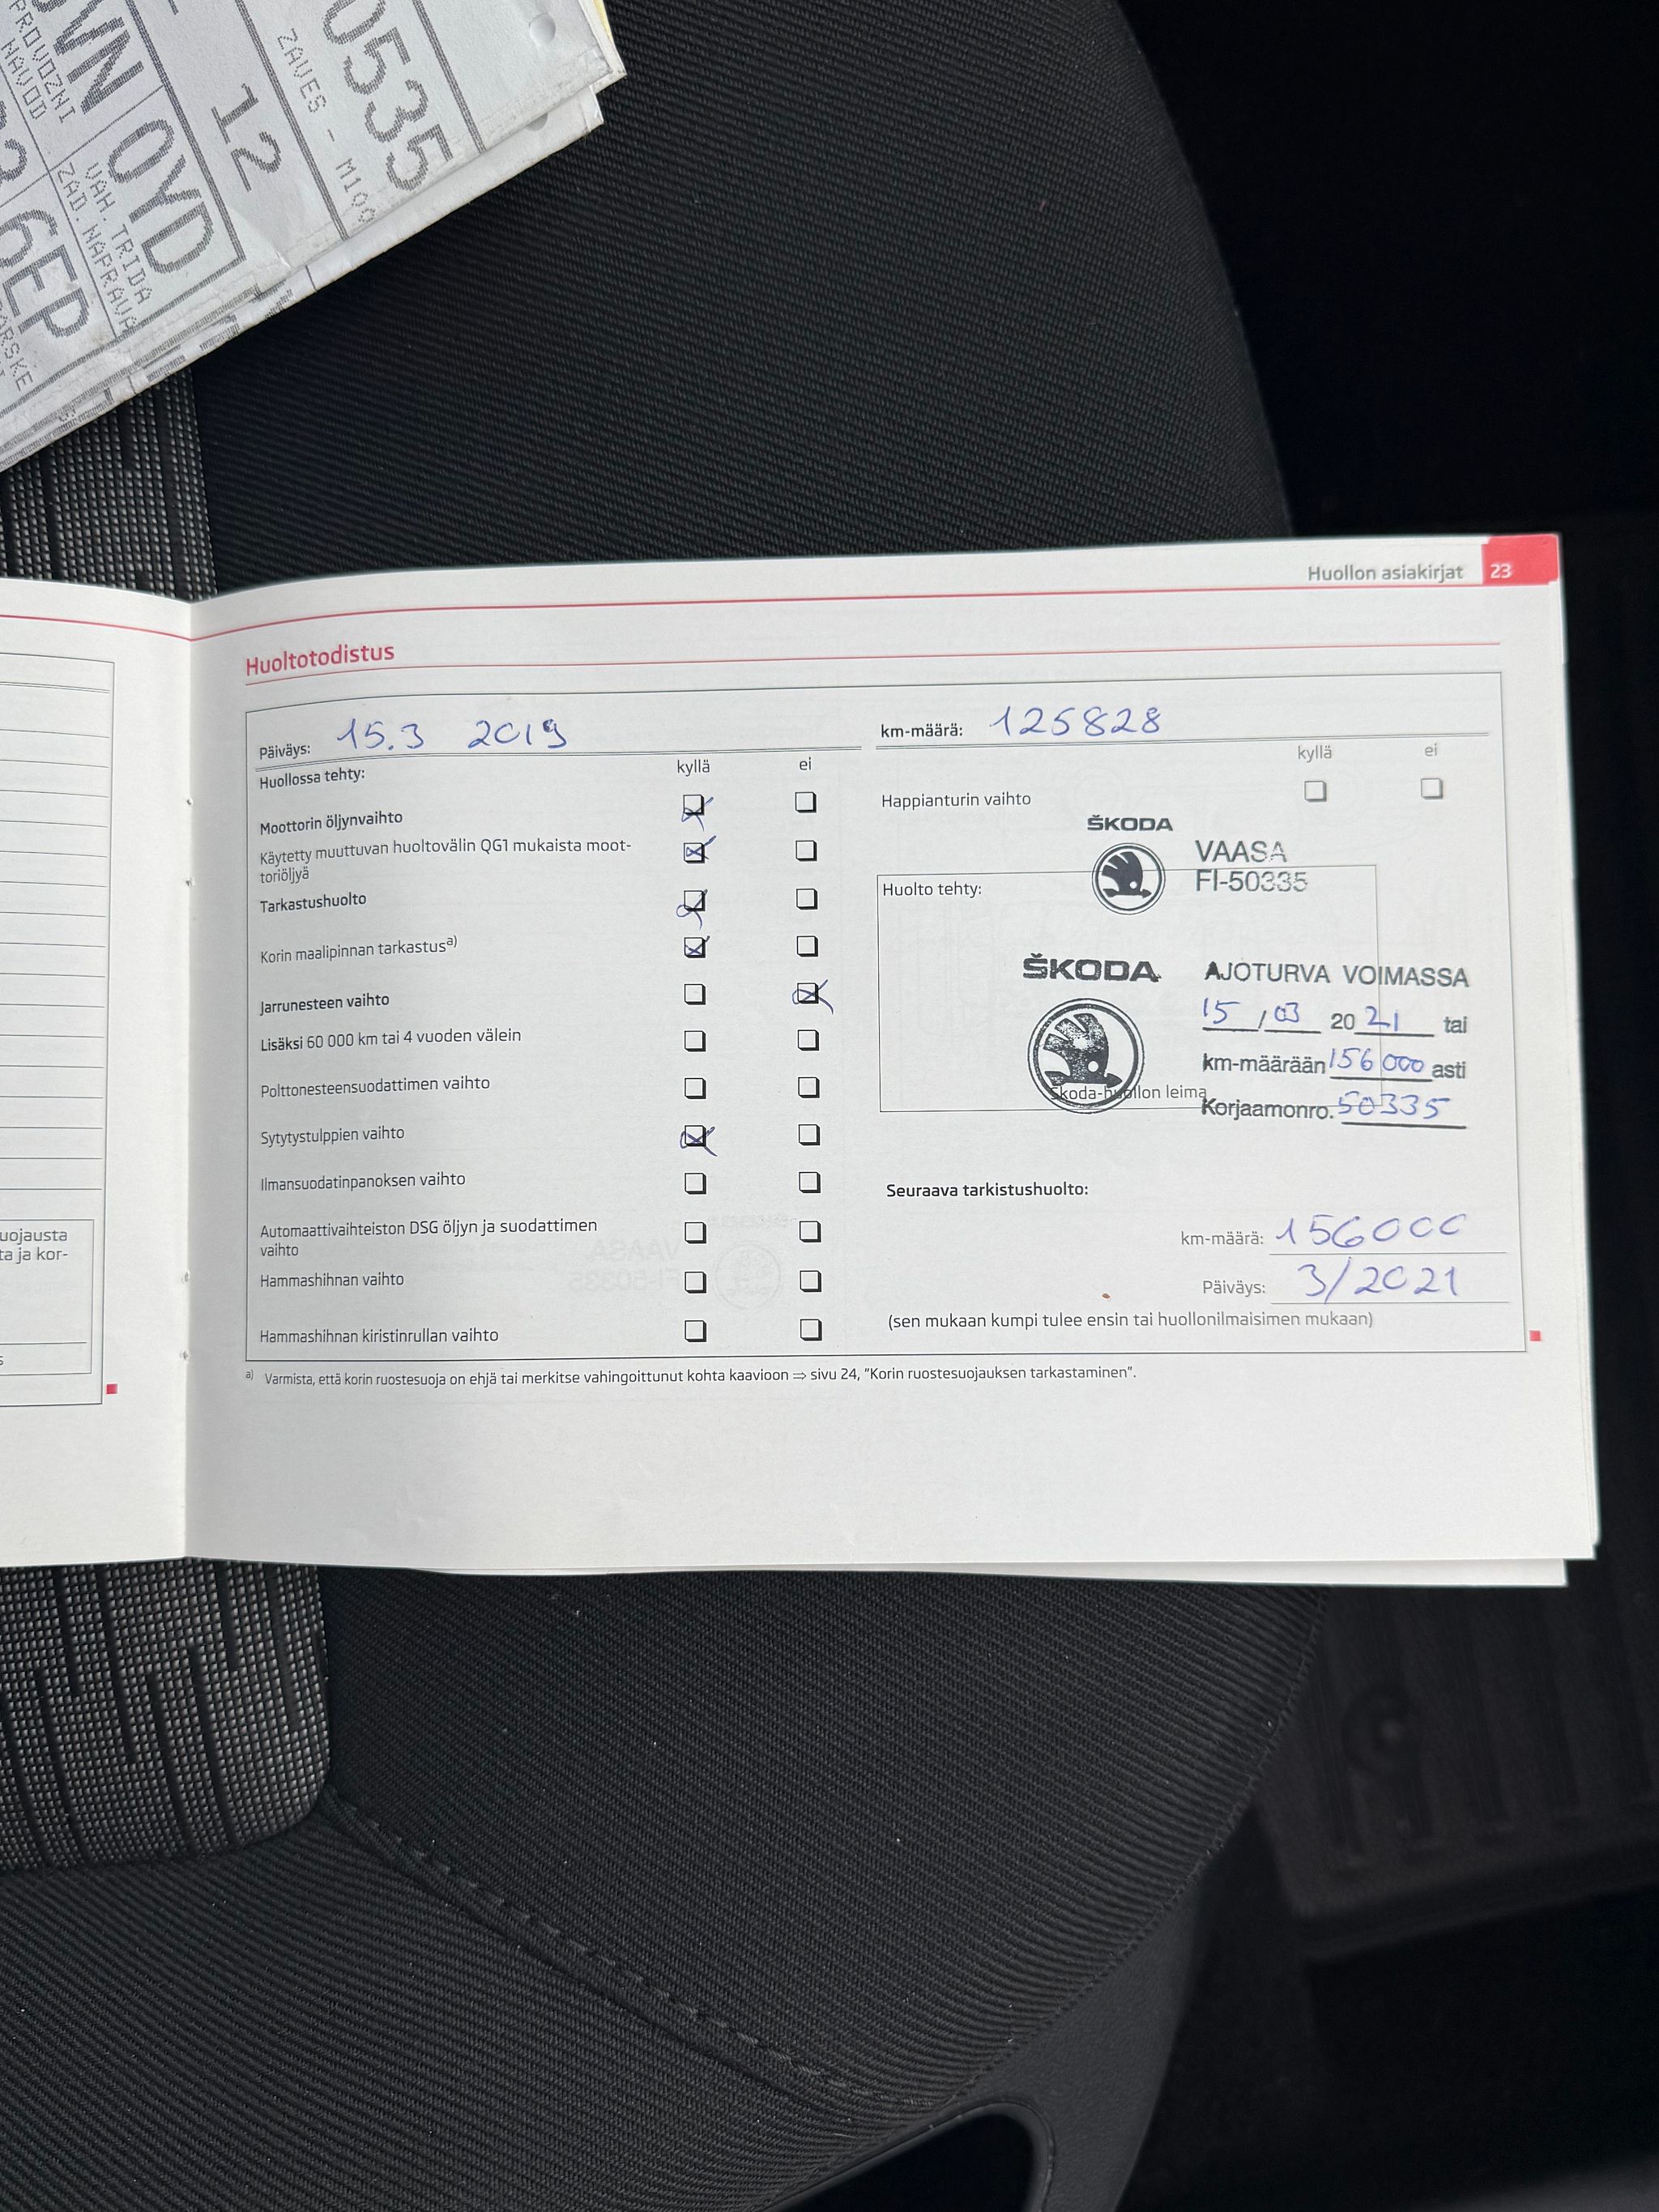 0535
ZAVES - M100
12
WN 0YD
PROVOZNI
NAVOD
VAH. TRIDA
ZAD. NAPRAVA
6EP
uojausta
ta ja kor-
Huollon asiakirjat 23
Huoltotodistus
Päiväys: 15.3 2019
km-määrä: 125828
Huollossa tehty: kyllä ei
kyllä ei
Moottorin öljynvaihto
Käytetty muuttuvan huoltovälin QG1 mukaista moot-
toriöljyä
Tarkastushuolto
Korin maalipinnan tarkastus a)
Jarrunesteen vaihto
Lisäksi 60 000 km tai 4 vuoden välein
Polttonesteensuodattimen vaihto
Sytytystulppien vaihto
Ilmansuodatinpanoksen vaihto
Automaattivaihteiston DSG öljyn ja suodattimen
vaihto
Hammashihnan vaihto
Hammashihnan kiristinrullan vaihto
Happianturin vaihto
ŠKODA
VAASA
FI-50335
Huolto tehty:
ŠKODA
AJOTURVA VOIMASSA
15/03 2021 tai
km-määrään 156 000 asti
Skoda-huollon leima
Korjaamonro. 50335
Seuraava tarkistushuolto:
km-määrä: 156000
Päiväys: 3/2021
(sen mukaan kumpi tulee ensin tai huollonilmaisimen mukaan)
a) Varmista, että korin ruostesuoja on ehjä tai merkitse vahingoittunut kohta kaavioon ⇒ sivu 24, "Korin ruostesuojauksen tarkastaminen".